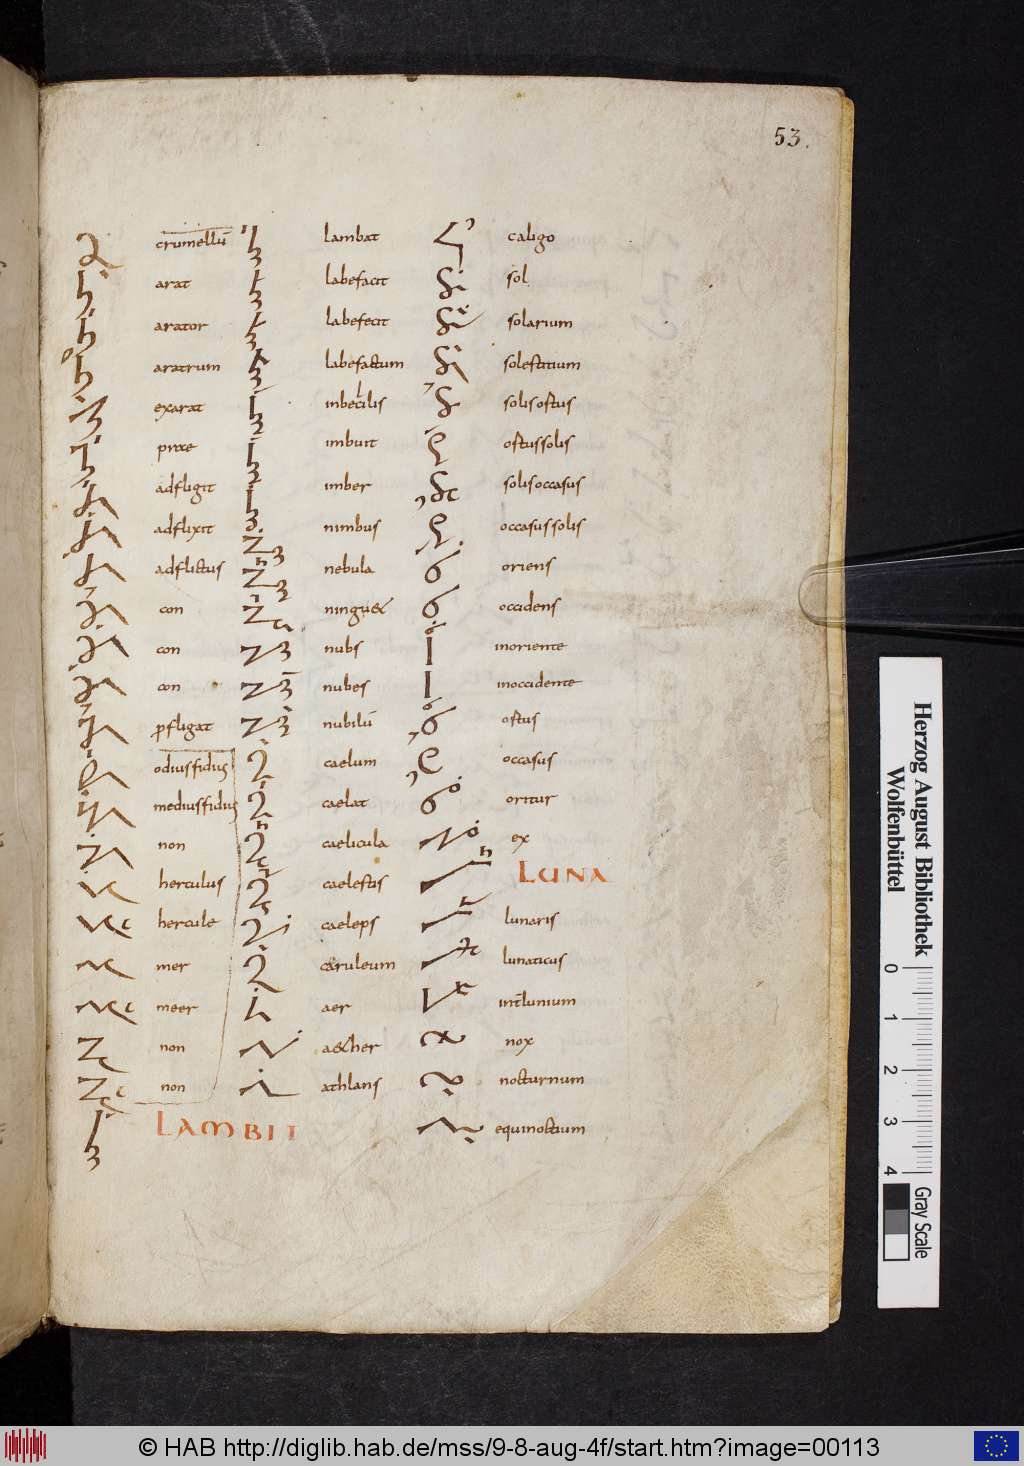 53.
crumellū
arat
arator
aratrum
exarat
adfligit
adflixit
adflictus
con
con
con
ꝓfligat
odiusfidius
mediusfidius
non
herculus
hercule
mer
meer
non
non
LAMBIT
lambat
labefacit
labefecit
labefactum
inbecilis
imbuit
imber
nimbus
nebula
ninguet
nubs
nubes
nubilū
caelum
caelat
caelicula
caelestis
caeleps
caruleum
aer
aether
athlans
caligo
sol
solarium
solestitium
solisostus
ostussolis
solisoccasus
occasussolis
oriens
occidens
inoriente
inoccidente
ostus
occasus
oritur
ex
LUNA
lunaris
lunaticus
nox
nocturnum
equinoctium
Herzog August Bibliothek
Wolfenbüttel
0 1 2 3 4
Gray Scale
© HAB http://diglib.hab.de/mss/9-8-aug-4f/start.htm?image=00113